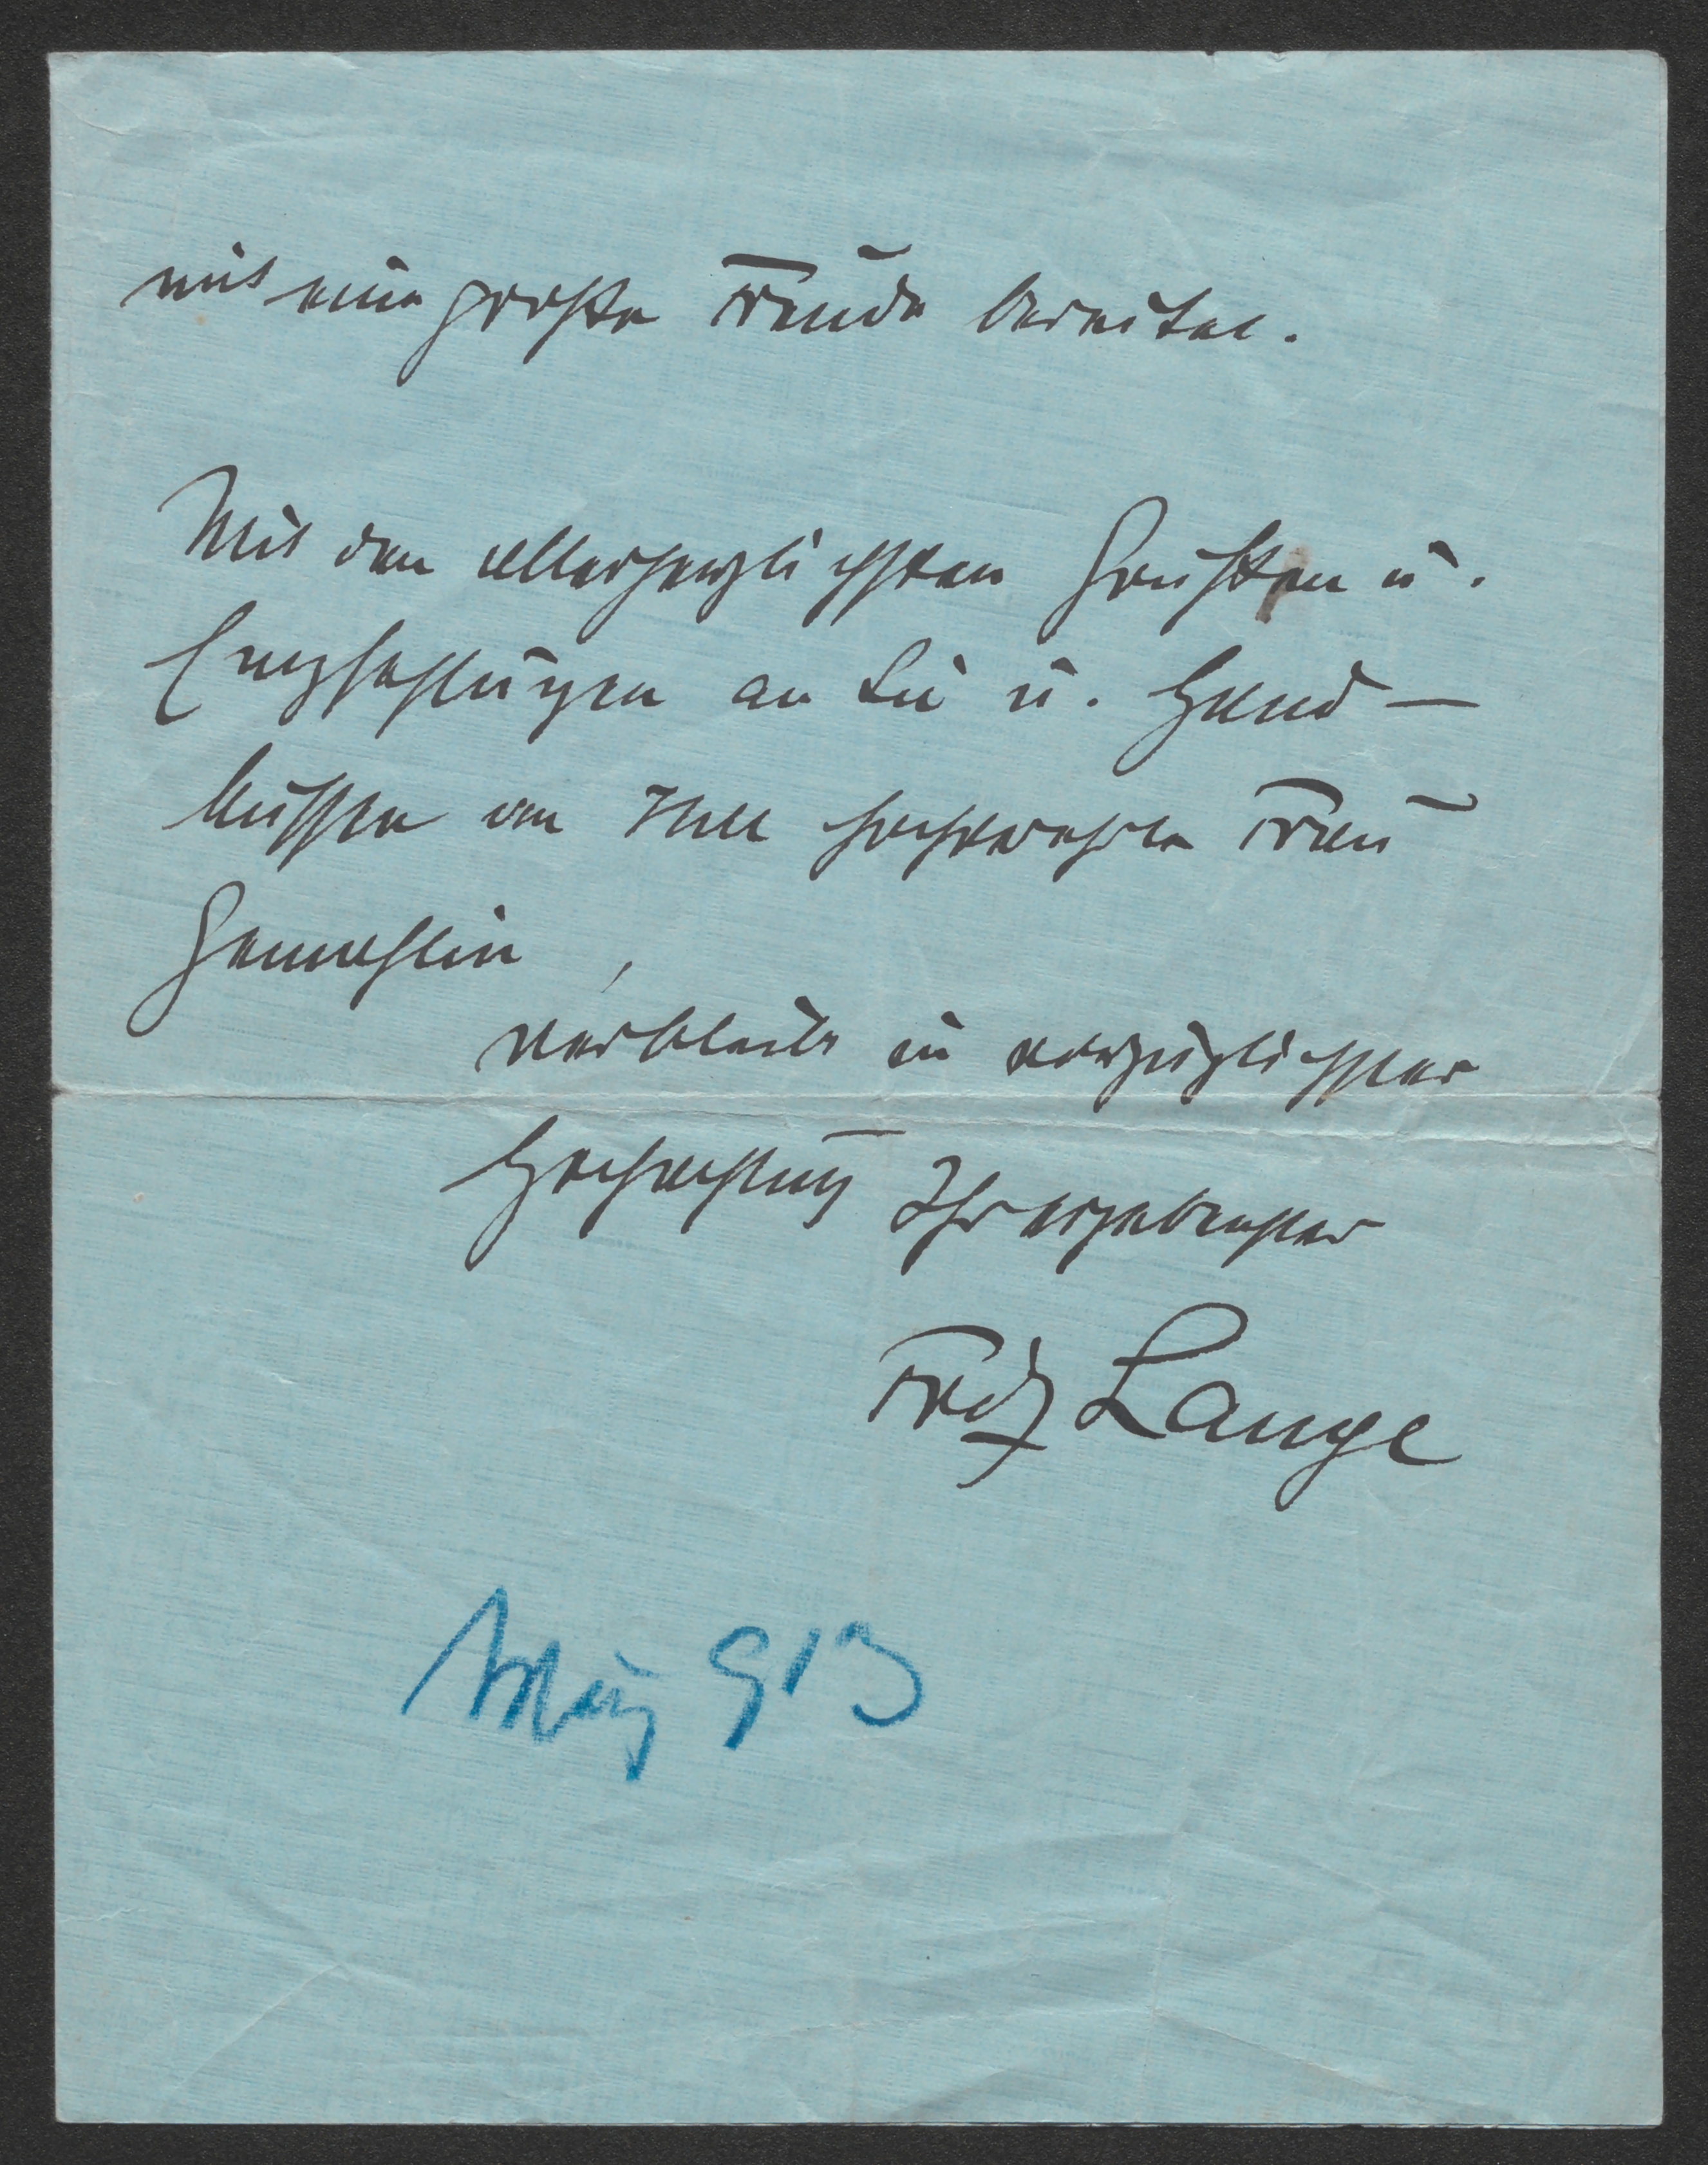 mir eine große Freude bereiten.
Mit den allerherzlichsten Grüßen u.
Empfehlungen an Sie u. Hand-
küssen an Ihre hochverehrte Frau
Gemahlin,
verbleibe in vorzüglichster
Hochachtung Ihr ergebenster
Fritz Lange
März 913